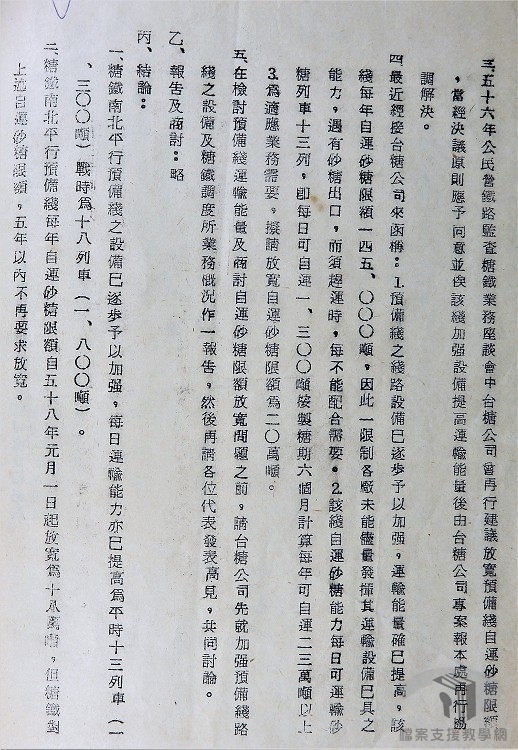 三、五十六年公民營鐵路監查糖鐵業務座談會中台糖公司曾再行建議放寬預備綫自運砂糖限額
，當經決議原則應予同意並俟該綫加强設備提高運輸能量後由台糖公司專案報本處再行協
調解決。
四、最近經接台糖公司來函稱：1.預備綫之綫路設備已逐步予以加强，運輸能量確已提高，該
綫每年自運砂糖限額一四五、〇〇〇噸，因此一限制各廠未能儘量發揮其運輸設備已具之
能力，遇有砂糖出口，而須趕運時，每不能配合需要。2.該綫自運砂糖能力每日可運輸砂
糖列車十三列，卽每日可自運一、三〇〇噸按製糖期六個月計算每年可自運二三萬噸以上
3.為適應業務需要，擬請放寬自運砂糖限額為二〇萬噸。
五、在檢討預備綫運輸能量及商討自運砂糖限額放寬問題之前，請台糖公司先就加强預備綫路
綫之設備及糖鐵調度所業務概況作一報告，然後再請各位代表發表高見，共同討論。
乙、報告及商討：略
丙、結論：
一、糖鐵南北平行預備綫之設備已逐步予以加强，每日運輸能力亦已提高為平時十三列車（一
、三〇〇噸）戰時為十八列車（一、八〇〇噸）。
二、糖鐵南北平行預備綫每年自運砂糖限額自五十八年元月一日起放寬為十八萬噸，但糖鐵對
上述自運砂糖限額，五年以內不再要求放寬。
檔案支援教學網